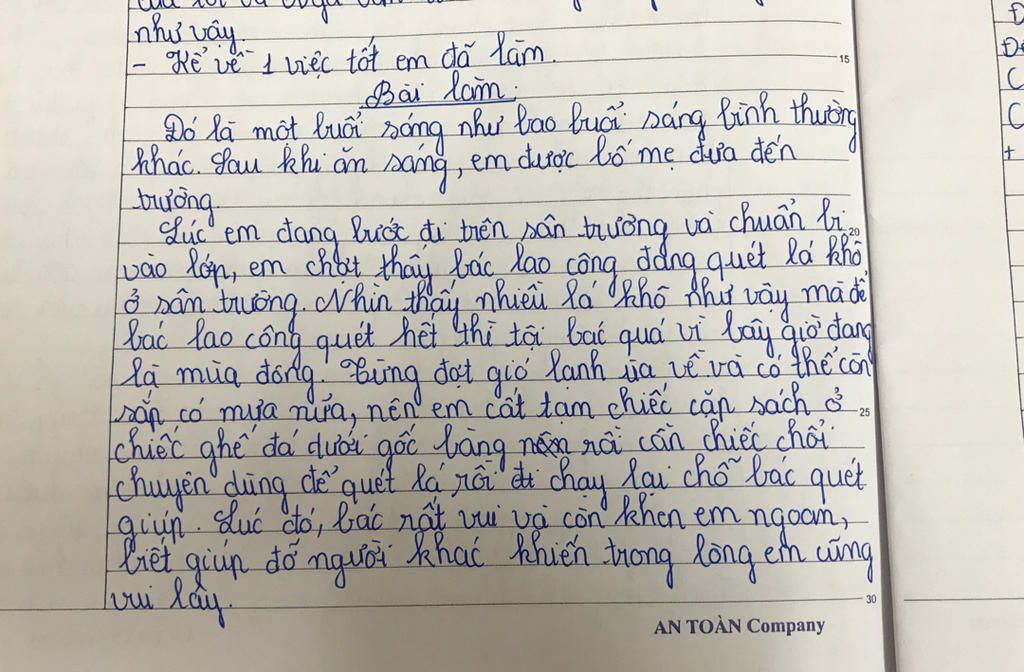 như vậy.
- Kể về 1 việc tốt em đã làm.
15
Bài làm:
Đó là một buổi sáng như bao buổi sáng bình thường
khác. Sau khi ăn sáng, em được bố mẹ đưa đến
trường.
Lúc em đang bước đi trên sân trường và chuẩn bị
20
vào lớp, em chợt thấy bác lao công đang quét lá khô
ở sân trường. Nhìn thấy nhiều lá khô như vậy mà để
bác lao công quét hết thì tội bác quá vì bây giờ đang
là mùa đông. Từng đợt gió lạnh ùa về và có thể còn
sắp có mưa nữa, nên em cất tạm chiếc cặp sách ở
25
chiếc ghế đá dưới gốc bàng rồi cần chiếc chổi
chuyên dùng để quét lá rồi chạy lại chỗ bác quét
giúp. Lúc đó, bác rất vui và còn khen em ngoan,
biết giúp đỡ người khác khiến trong lòng em cũng
vui lây.
30
AN TOÀN Company
Đ
C
C
+